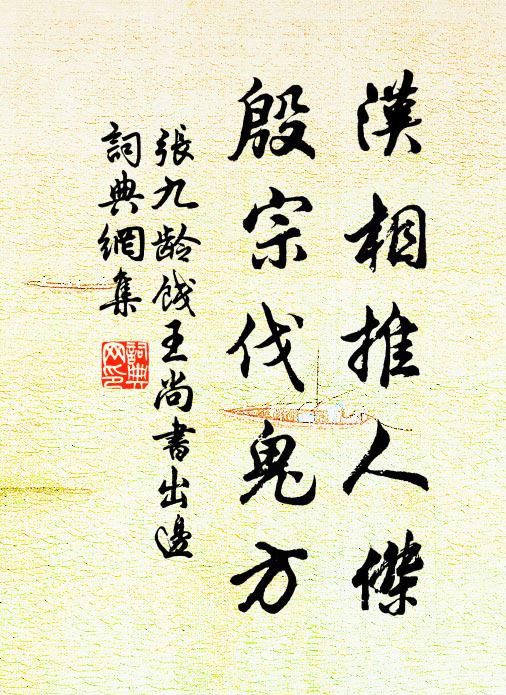 漢相推人傑
殷宗伐鬼方
張九龄餞王尚書出邊
詞典網集
詞典
网印